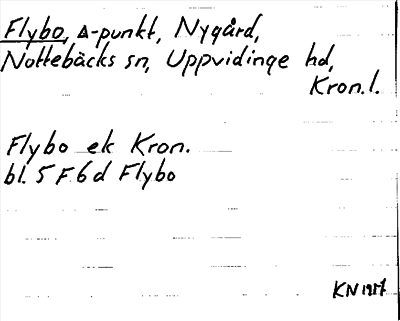 Flybo, ∆-punkt, Nygård,
Nottebäcks sn, Uppvidinge hd,
Kron. l.
Flybo ek Kron.
bl. 5 F 6 d Flybo
KN 1917